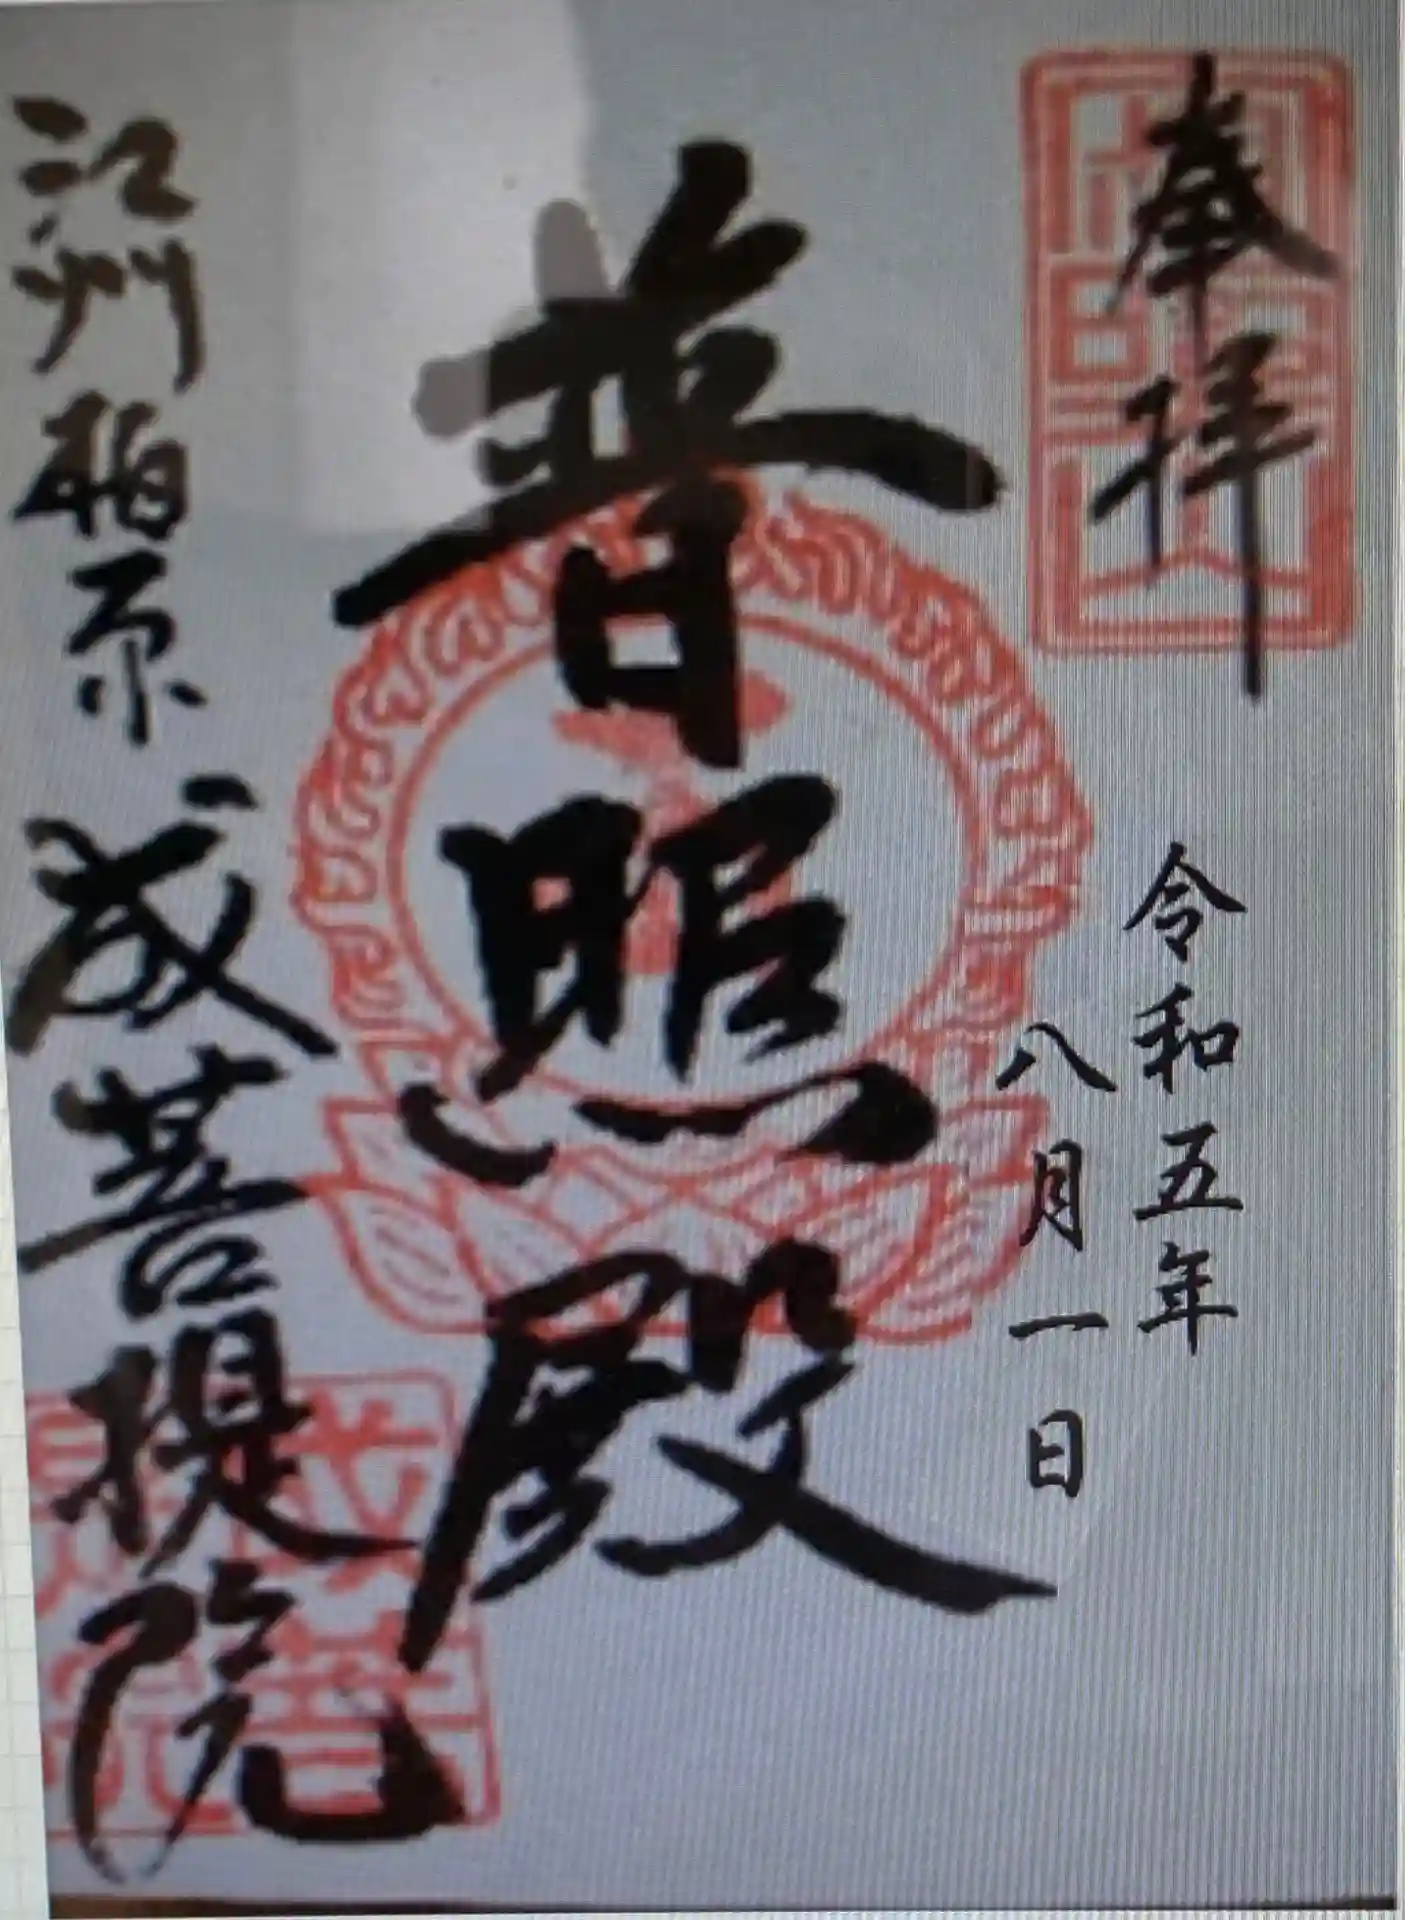 奉拝
令和五年
八月一日
普照殿
江州柏原 成菩提院